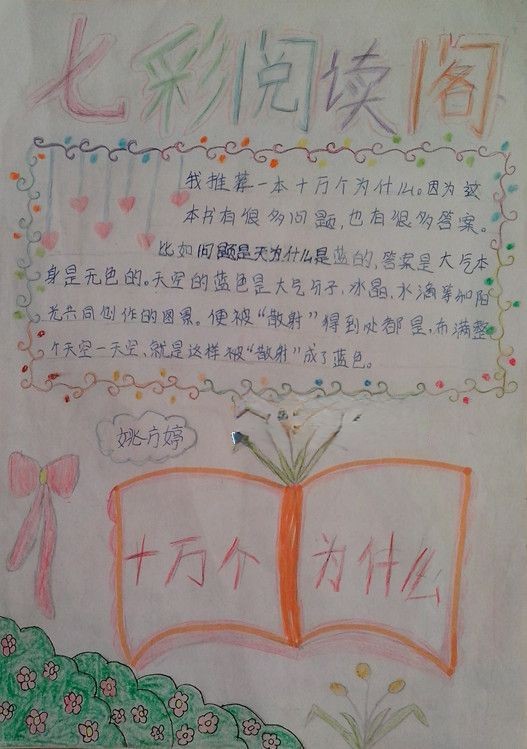 七彩阅读阁
我推荐一本十万个为什么。因为这
本书有很多问题,也有很多答案。
比如问题是天为什么是蓝的,答案是大气本
身是无色的。天空的蓝色是大气分子,冰晶,水滴等和阳
光共同创作的图景。便被“散射”得到处都是,布满整
个天空一天空,就是这样被“散射”成了蓝色。
姚方婷
十万个 为什么